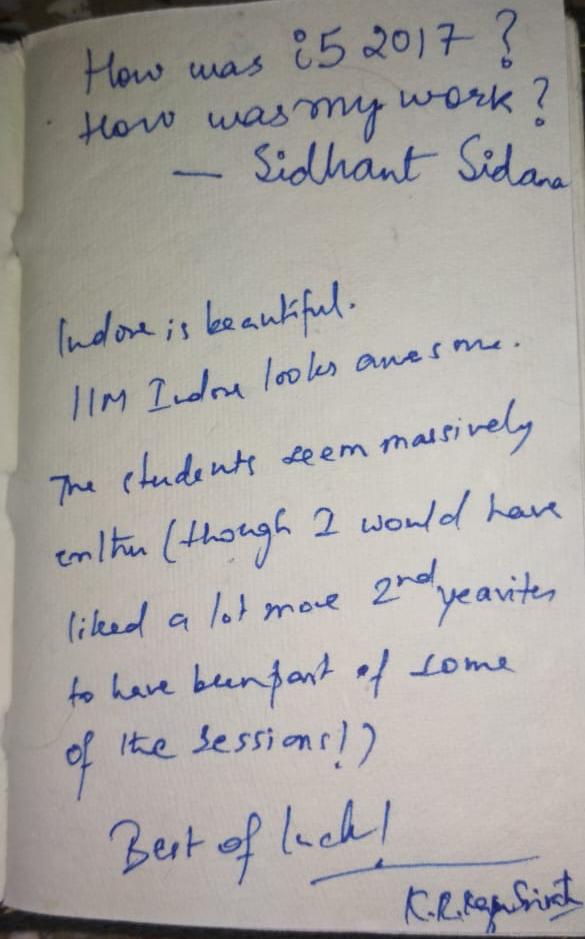 How was i5 2017?
How was my work?
— Sidhant Sidana
Indore is beautiful.
IIM Indore looks awesome.
The students seem massively
enthu (though I would have
liked a lot more 2nd yearites
to have been part of some
of the sessions!)
Best of luck!
K.R.